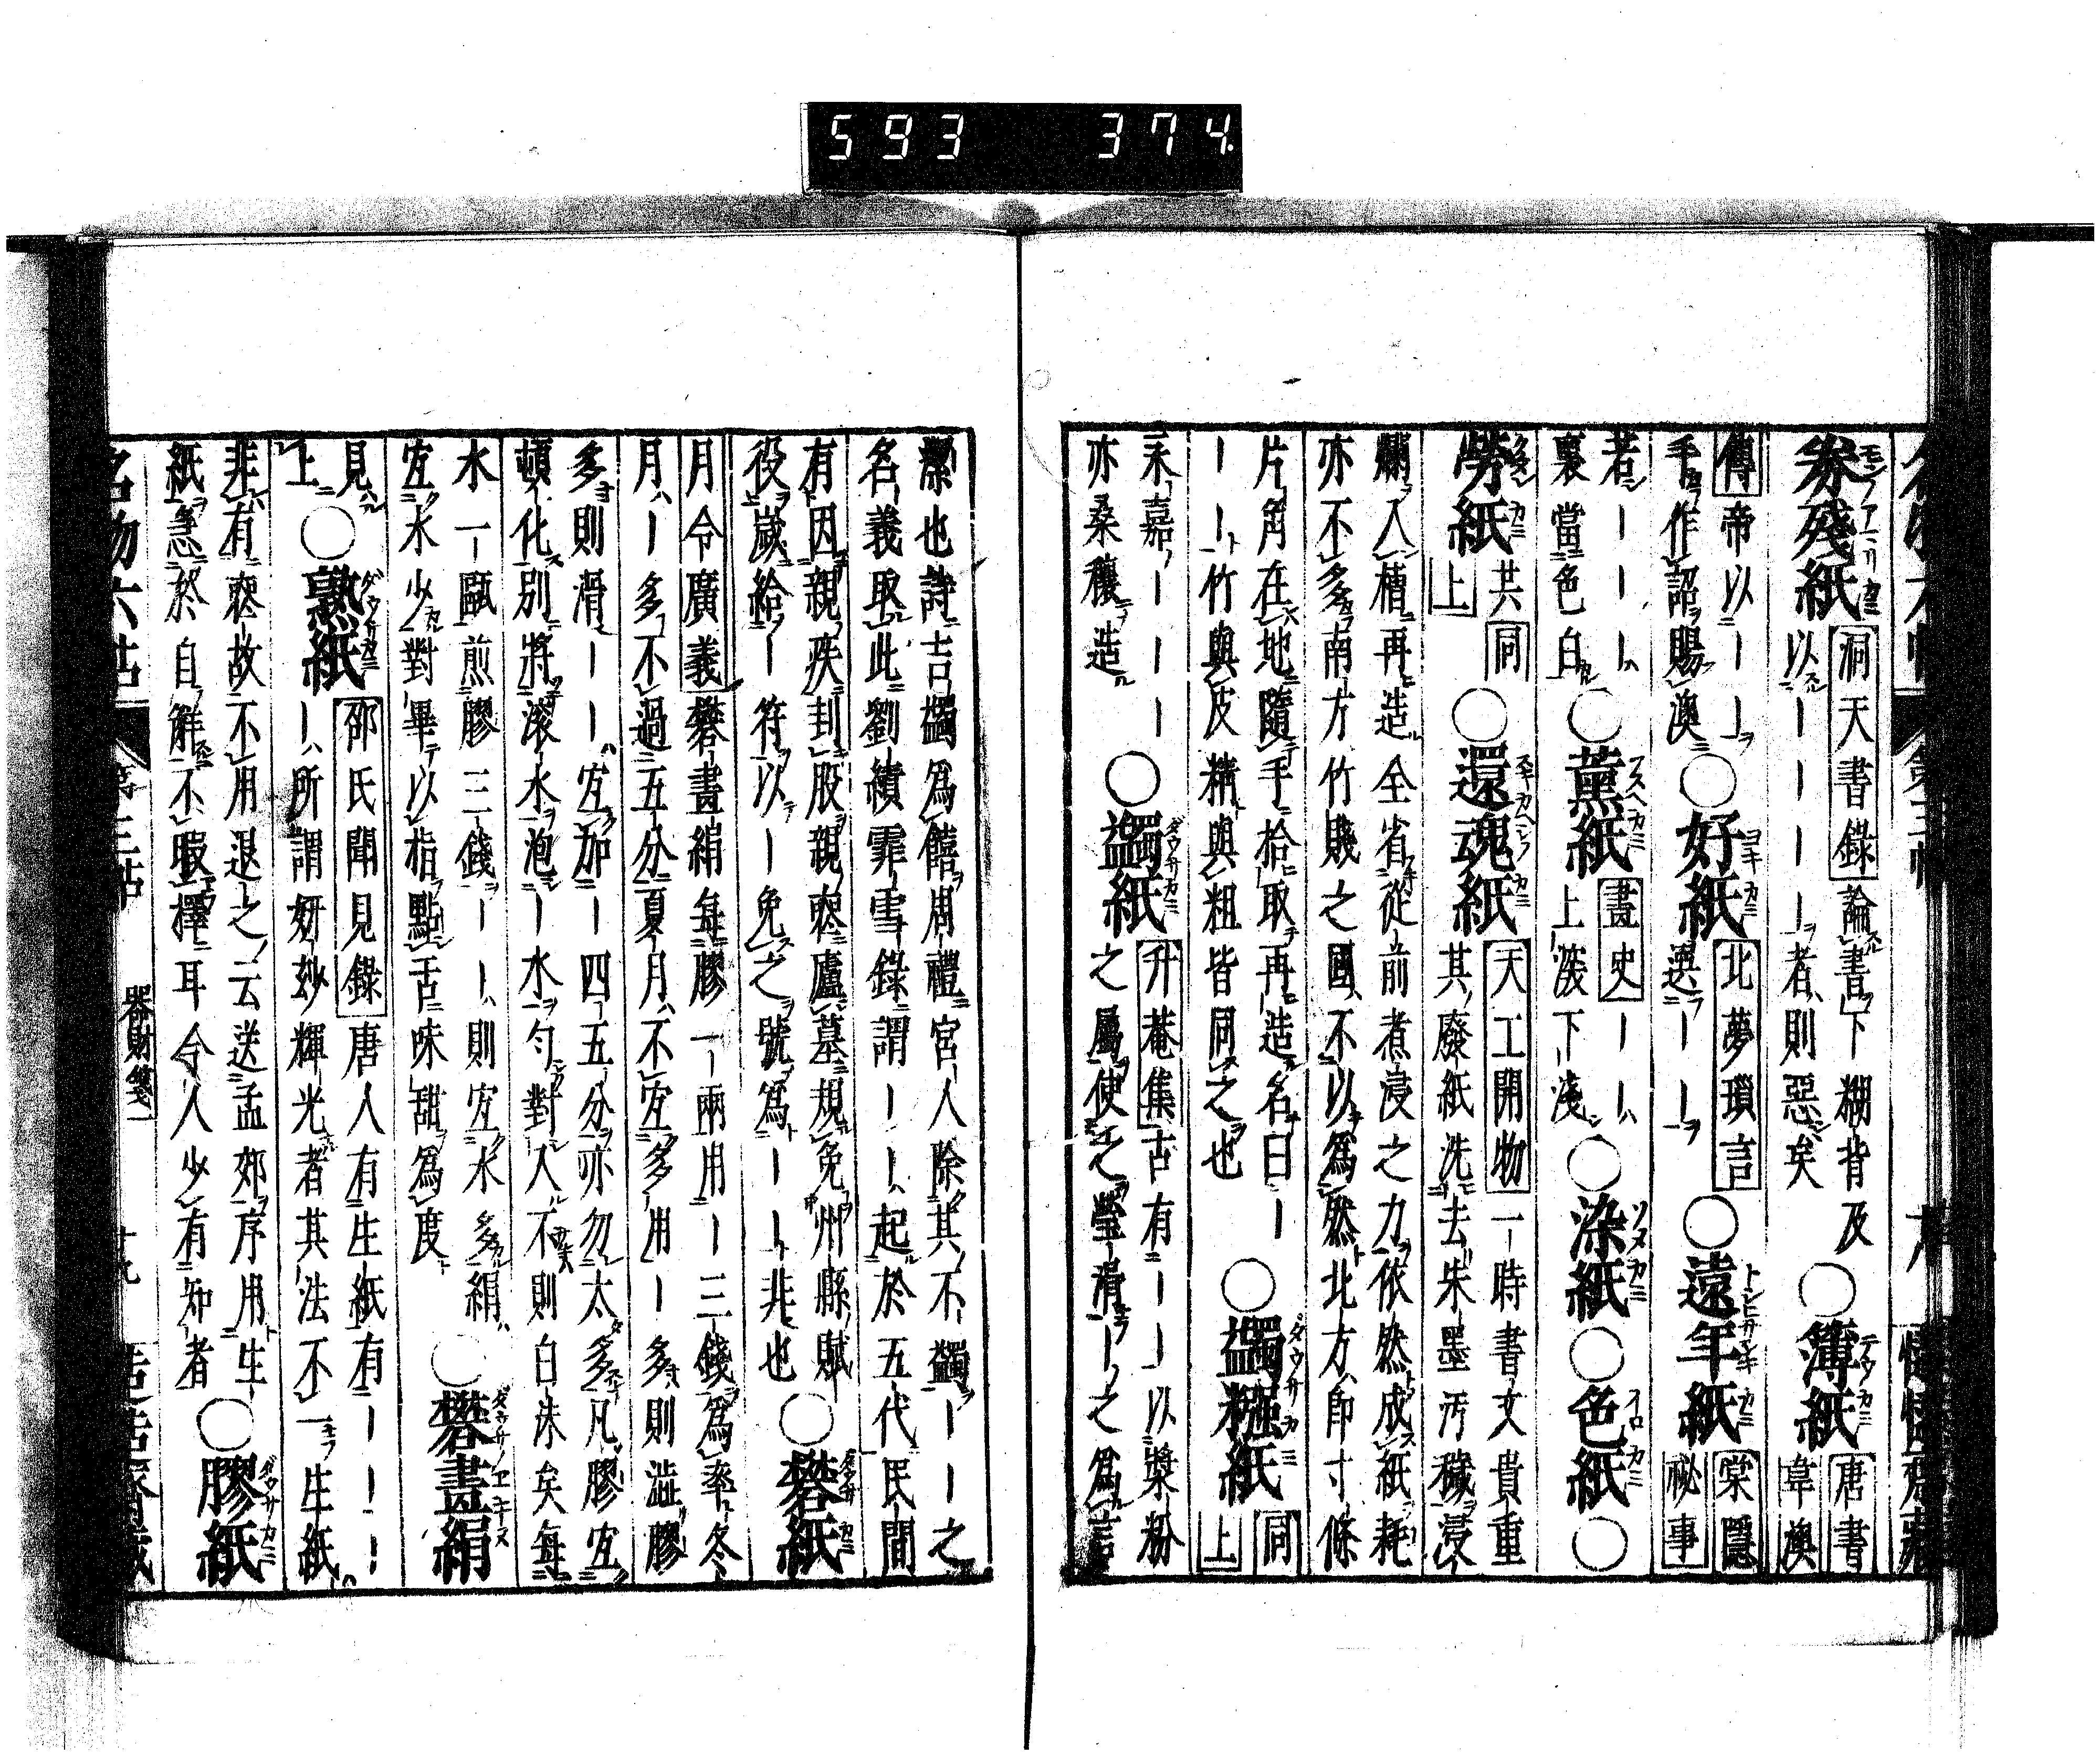 593 374
券殘紙 洞天書錄 論書下糊背及
以一一一一一者則惡矣 ○簿紙 唐書韋澳
傳 帝以一一
手作詔賜澳 ○好紙 北夢瑣言 選一一 ○遠年紙 棠隱祕事
若一一一
裏當色白 ○薰紙 畫史 一一上淡下淺 ○染紙 ○色紙 ○
勞紙 共同上 ○還魂紙 天工開物 一時書文貴重
其廢紙洗去朱墨汚穢浸
爛入槽再造全省從前煮浸之力依然成紙耗
亦不多南方竹賤之國不以為然北方即寸條
片角在地隨手拾取再造名曰一
一一竹與皮精與粗皆同之也 ○蠲糨紙 同上
永嘉一一一一
亦桑穰造 ○蠲紙 升菴集 古有一一以漿粉
之屬使之瑩滑一之為言
潔也詩吉蠲爲饎周禮宮人除其不蠲一一之
名義取此劉績霏雪錄謂一一起於五代民間
有因親疾封股親喪廬墓規免州縣賦
役歲給一符以一免之號爲一一非也 ○礬紙
月令廣義 礬畫絹每膠一兩用一三錢爲率冬
月一多不過五分夏月不宜多用一多則澁膠
多則滑一一宜加一四五分亦勿太多凡膠宜
頓化別將滚水泡一水勻對入不則白沫矣每
水一甌煎膠三錢一一則宜水多絹
宜水少對畢以指點舌味甜爲度 ○礬畫絹
見上 ○熟紙 邵氏聞見錄 唐人有生紙有一一
一所謂姸玅輝光者其法不一生紙
非有喪故不用退之云送孟郊序用生
紙急於自解不暇擇耳今人少有知者 ○膠紙
名物六帖 第三帖 器財箋一 十九